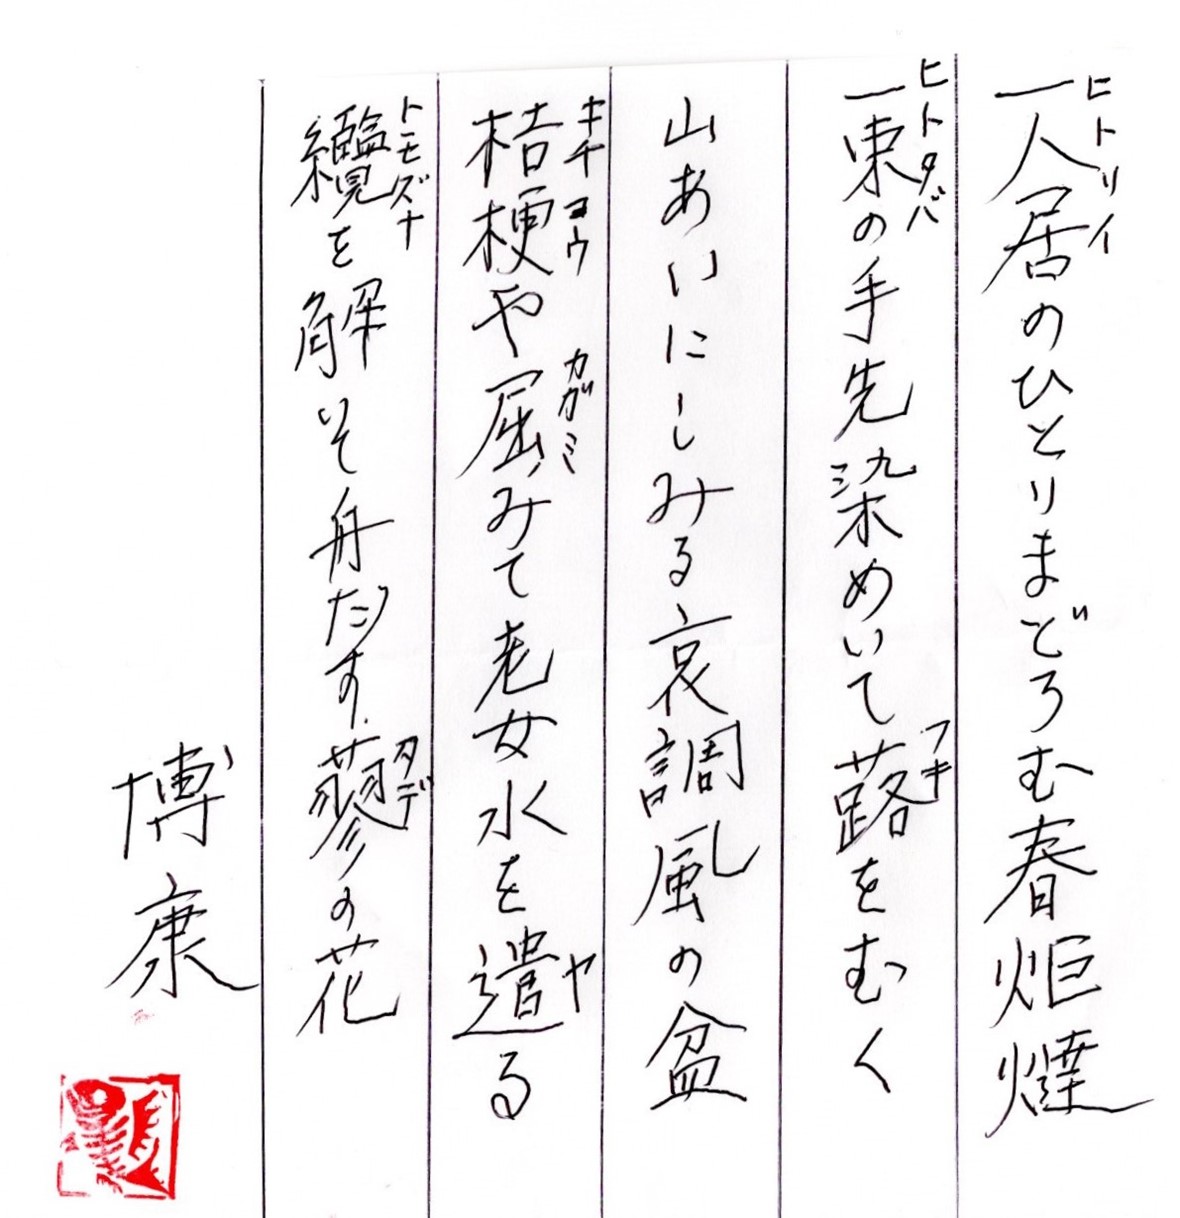 一人居のひとりまどろむ春炬燵
ヒトリイ
一束の手先染めいて蕗をむく
ヒトタバ
フキ
山あいにしみる哀調風の盆
桔梗や屈みて老女水を遣る
キチヨウ
カガミ
ヤ
纜を解いて舟だす蓼の花
トモズナ
タデ
博康